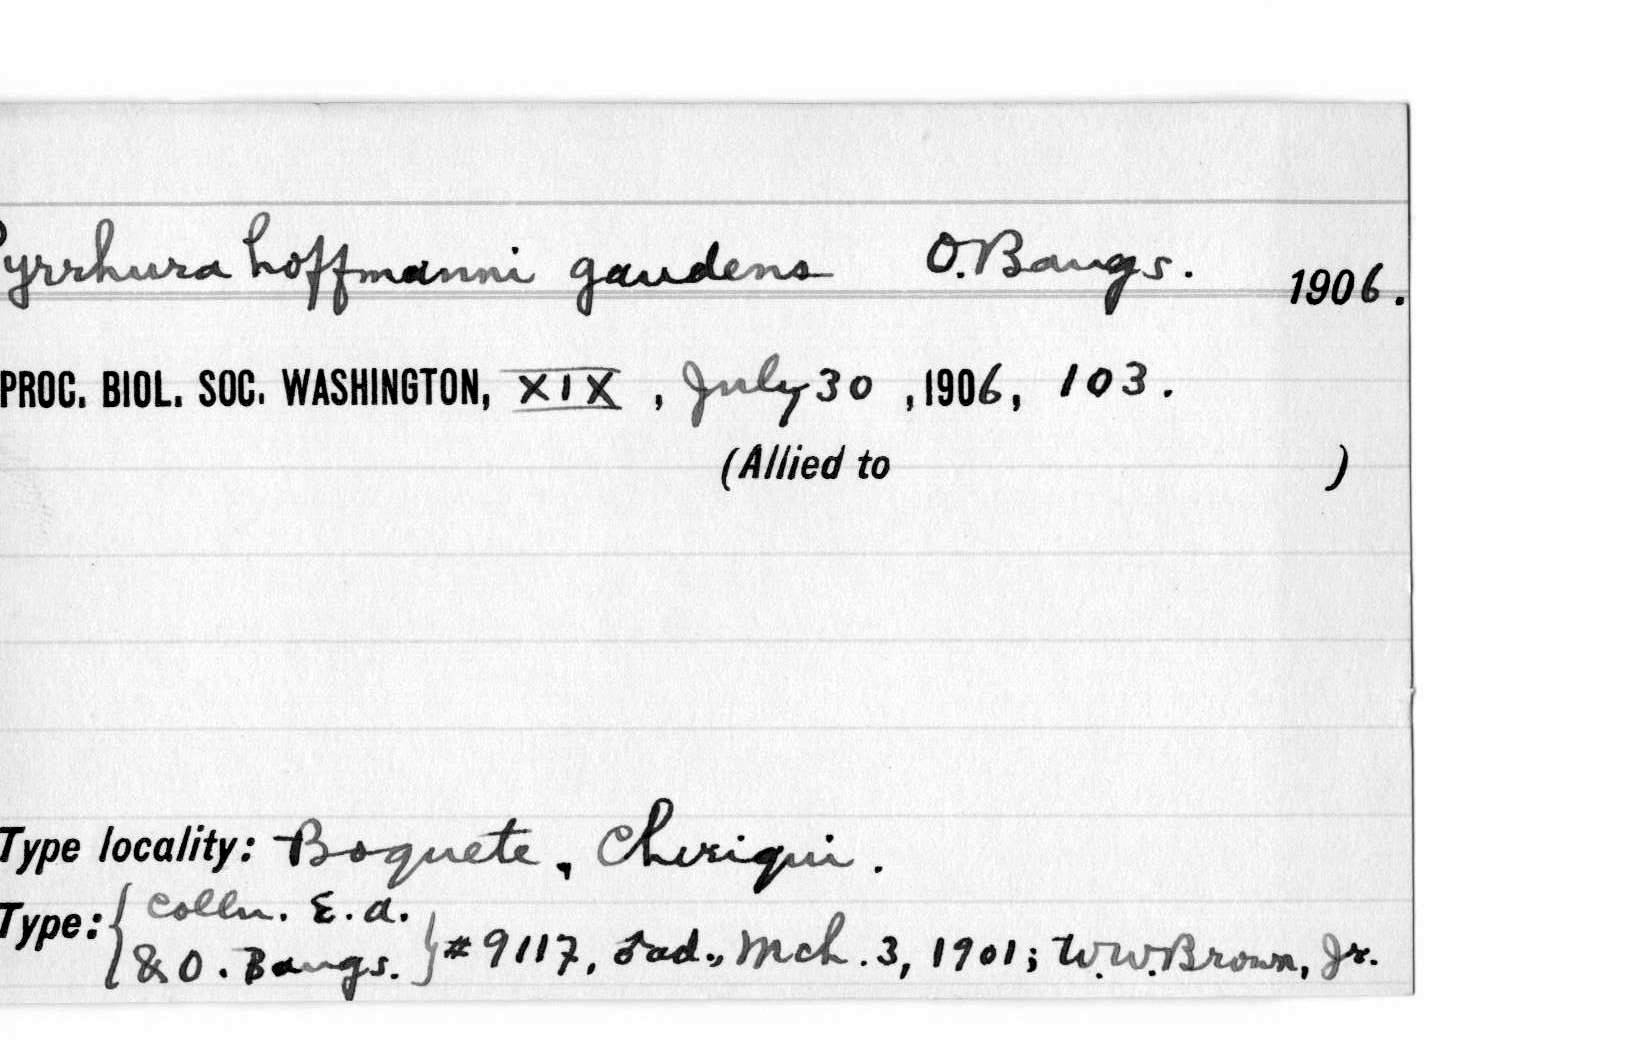 Pyrrhura hoffmanni gaudens O. Bangs. 1906.
PROC. BIOL. SOC. WASHINGTON, XIX, July 30, 1906, 103.
(Allied to )
Type locality: Boquete, Chiriqui.
Type: { Colln. E. A.
& O. Bangs. } #9117, ♂ad., Mch. 3, 1901; W. W. Brown, Jr.